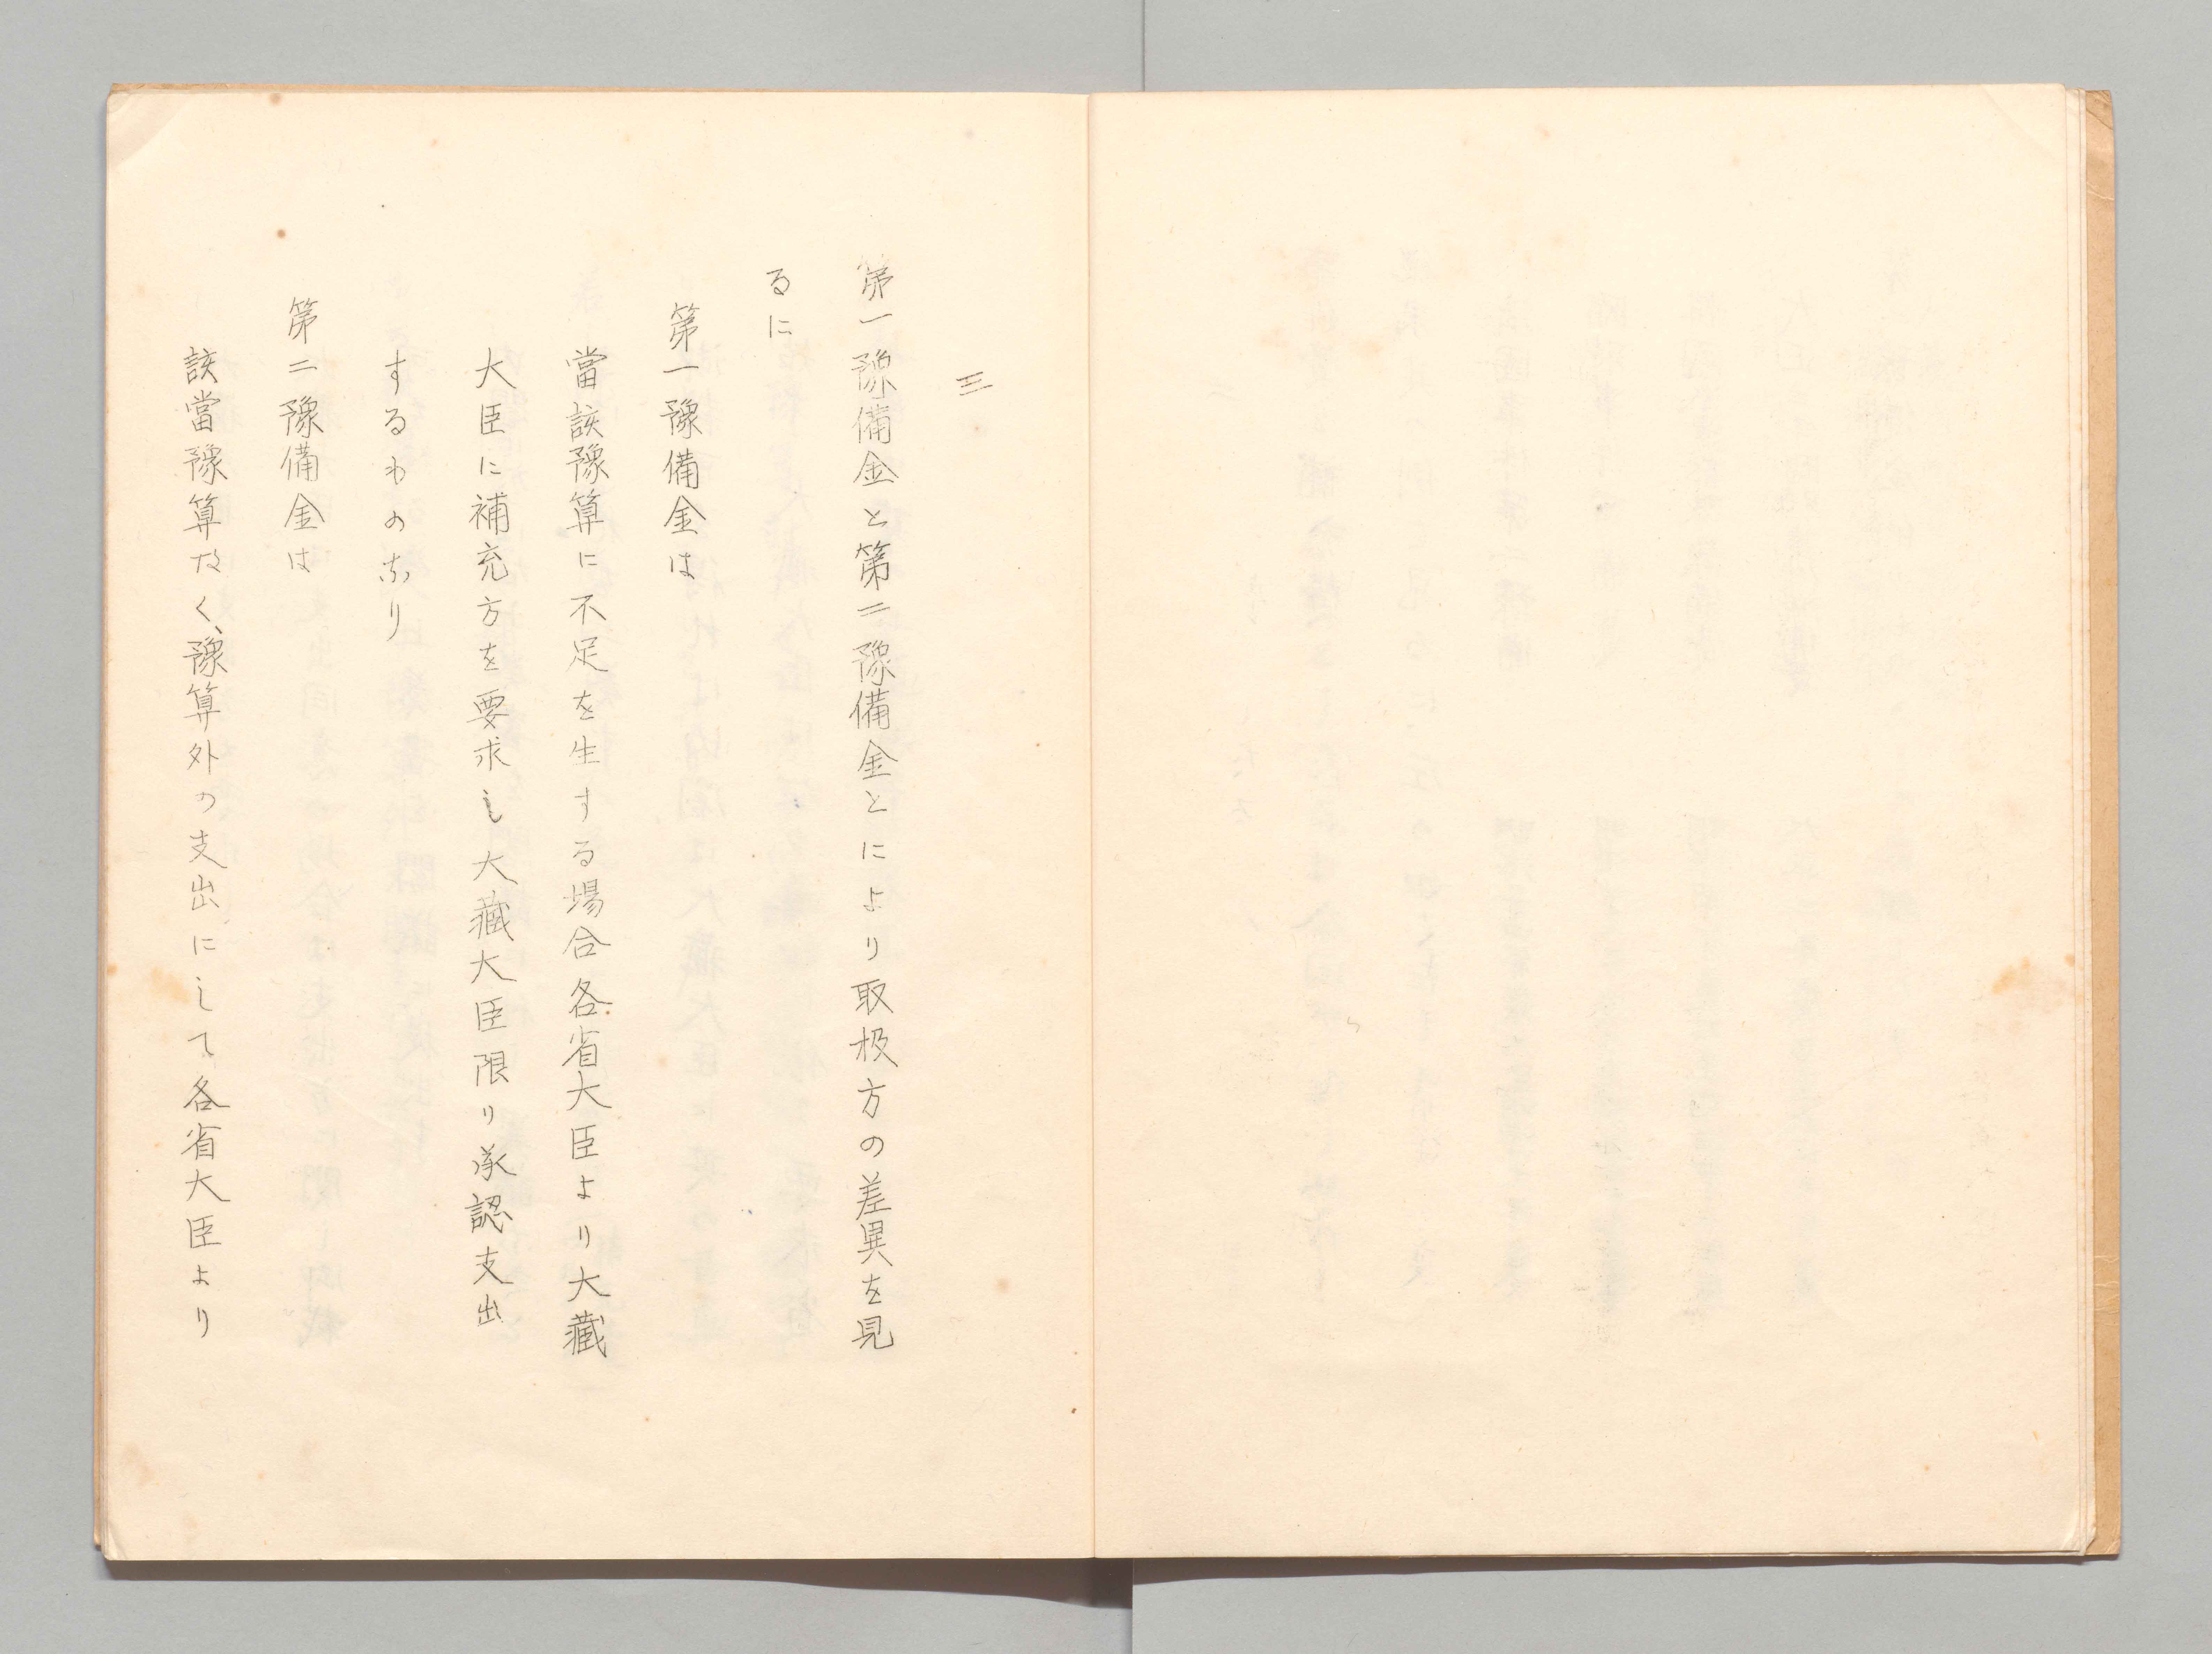 三
第一豫備金と第二豫備金とにより取扱方の差異を見
るに
第一豫備金は
當該豫算に不足を生する場合各省大臣より大藏
大臣に補充方を要求し大藏大臣限り承認支出
するものなり
第二豫備金は
該當豫算なく、豫算外の支出にして各省大臣より